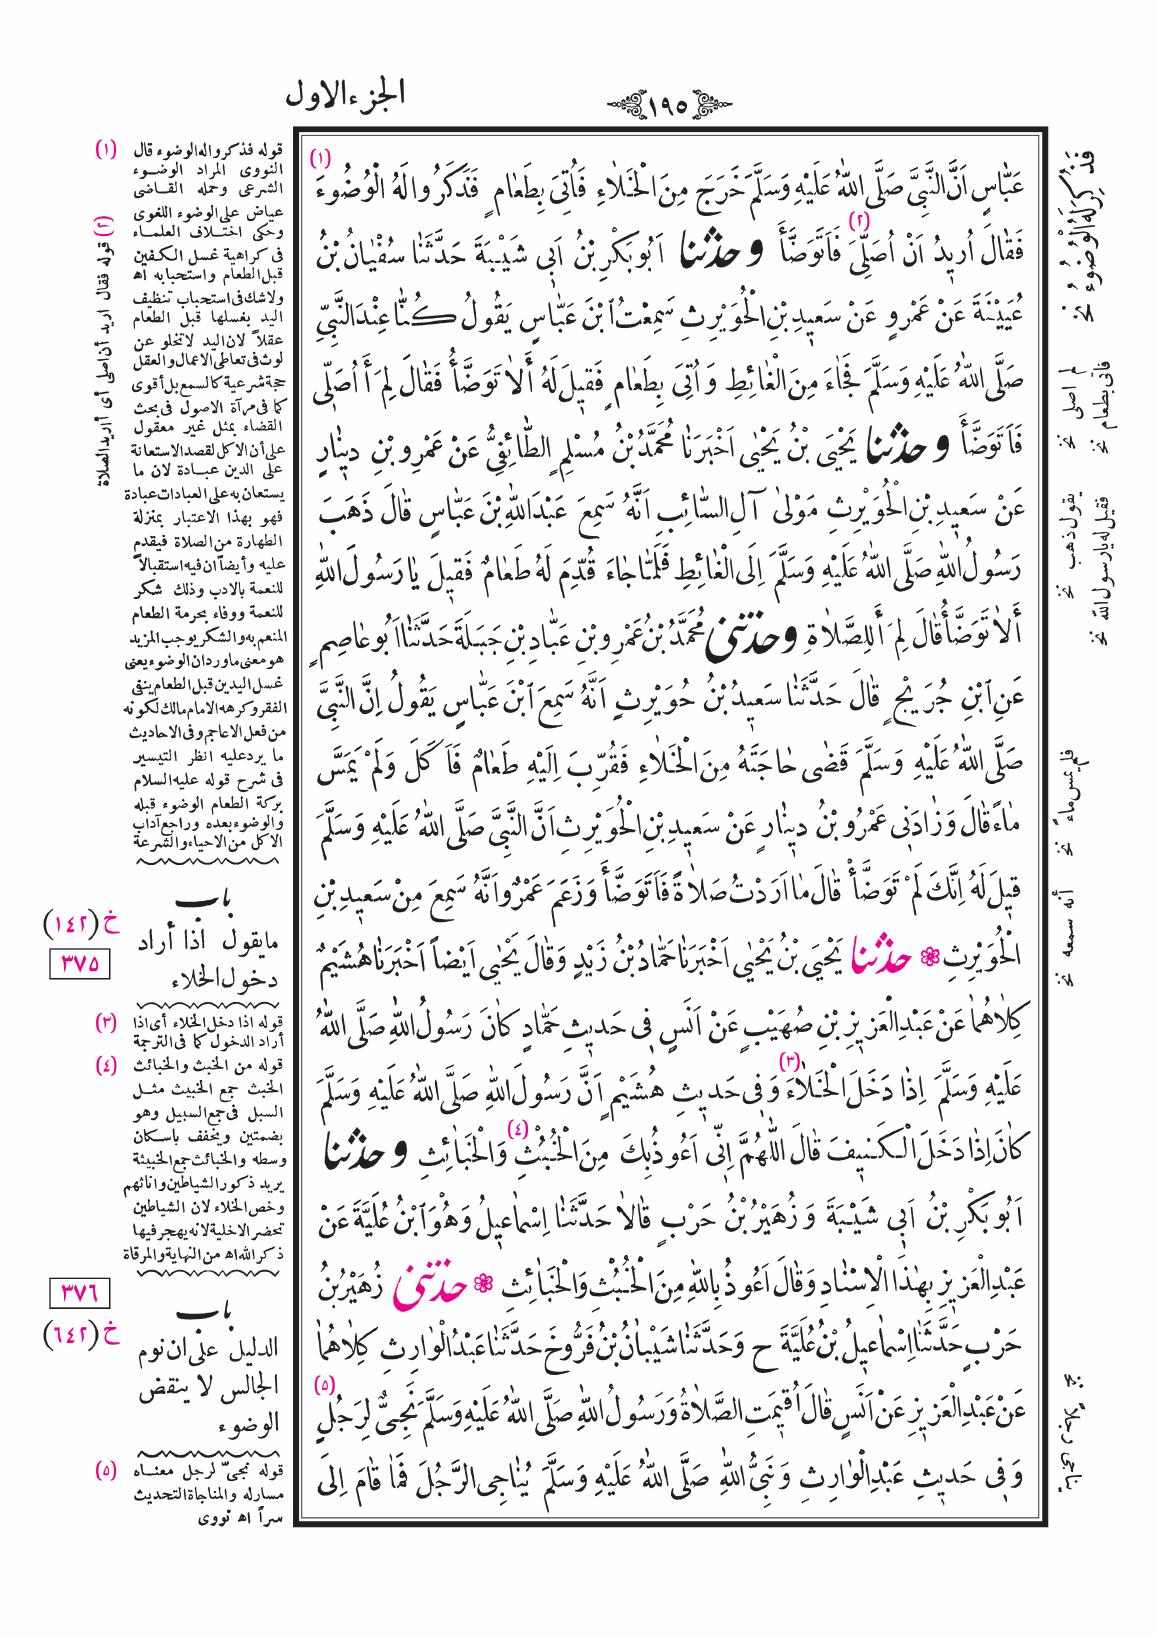 الجزء الاول
﴿١٩٥﴾
عَبَّاسٍ اَنَّ النَّبِيَّ صَلَّى اللّٰهُ عَلَيْهِ وَسَلَّمَ خَرَجَ مِنَ الْخَلَاءِ فَاُتِيَ بِطَعَامٍ فَذَكَرُوا لَهُ الْوُضُوءَ (١)
فَقَالَ اُرِيدُ اَنْ اُصَلِّيَ (٢) فَاَتَوَضَّأَ وحدثنا اَبُو بَكْرِ بْنُ اَبِي شَيْبَةَ حَدَّثَنَا سُفْيَانُ بْنُ
عُيَيْنَةَ عَنْ عَمْرٍو عَنْ سَعِيدِ بْنِ الْحُوَيْرِثِ سَمِعْتُ ابْنَ عَبَّاسٍ يَقُولُ كُنَّا عِنْدَ النَّبِيِّ
صَلَّى اللّٰهُ عَلَيْهِ وَسَلَّمَ فَجَاءَ مِنَ الْغَائِطِ وَاُتِيَ بِطَعَامٍ فَقِيلَ لَهُ أَلَا تَوَضَّأُ فَقَالَ لِمَ أَاُصَلِّي
فَاَتَوَضَّأَ وحدثنا يَحْيَى بْنُ يَحْيٰى اَخْبَرَنَا مُحَمَّدُ بْنُ مُسْلِمٍ الطَّائِفِيُّ عَنْ عَمْرِو بْنِ دِينَارٍ
عَنْ سَعِيدِ بْنِ الْحُوَيْرِثِ مَوْلٰى آلِ السَّائِبِ اَنَّهُ سَمِعَ عَبْدَ اللّٰهِ بْنَ عَبَّاسٍ قَالَ ذَهَبَ
رَسُولُ اللّٰهِ صَلَّى اللّٰهُ عَلَيْهِ وَسَلَّمَ اِلَى الْغَائِطِ فَلَمَّا جَاءَ قُدِّمَ لَهُ طَعَامٌ فَقِيلَ يَا رَسُولَ اللّٰهِ
أَلَا تَوَضَّأُ قَالَ لِمَ أَلِلصَّلَاةِ وحدثنى مُحَمَّدُ بْنُ عَمْرِو بْنِ عَبَّادِ بْنِ جَبَلَةَ حَدَّثَنَا اَبُو عَاصِمٍ
عَنِ ابْنِ جُرَيْجٍ قَالَ حَدَّثَنَا سَعِيدُ بْنُ حُوَيْرِثٍ اَنَّهُ سَمِعَ ابْنَ عَبَّاسٍ يَقُولُ اِنَّ النَّبِيَّ
صَلَّى اللّٰهُ عَلَيْهِ وَسَلَّمَ قَضٰى حَاجَتَهُ مِنَ الْخَلَاءِ فَقُرِّبَ اِلَيْهِ طَعَامٌ فَاَكَلَ وَلَمْ يَمَسَّ
مَاءً قَالَ وَزَادَنِي عَمْرُو بْنُ دِينَارٍ عَنْ سَعِيدِ بْنِ الْحُوَيْرِثِ اَنَّ النَّبِيَّ صَلَّى اللّٰهُ عَلَيْهِ وَسَلَّمَ
قِيلَ لَهُ اِنَّكَ لَمْ تَوَضَّأْ قَالَ مَا اَرَدْتُ صَلَاةً فَاَتَوَضَّأَ وَزَعَمَ عَمْرٌو اَنَّهُ سَمِعَ مِنْ سَعِيدِ بْنِ
الْحُوَيْرِثِ ❁ حدثنا يَحْيَى بْنُ يَحْيٰى اَخْبَرَنَا حَمَّادُ بْنُ زَيْدٍ وَقَالَ يَحْيٰى اَيْضاً اَخْبَرَنَا هُشَيْمٌ
كِلَاهُمَا عَنْ عَبْدِ الْعَزِيزِ بْنِ صُهَيْبٍ عَنْ اَنَسٍ فِي حَدِيثِ حَمَّادٍ كَانَ رَسُولُ اللّٰهِ صَلَّى اللّٰهُ
عَلَيْهِ وَسَلَّمَ اِذَا دَخَلَ الْخَلَاءَ (٣) وَفِي حَدِيثِ هُشَيْمٍ اَنَّ رَسُولَ اللّٰهِ صَلَّى اللّٰهُ عَلَيْهِ وَسَلَّمَ
كَانَ اِذَا دَخَلَ الْكَنِيفَ قَالَ اللّٰهُمَّ اِنِّي اَعُوذُ بِكَ مِنَ الْخُبُثِ (٤) وَالْخَبَائِثِ وحدثنا
اَبُو بَكْرِ بْنُ اَبِي شَيْبَةَ وَزُهَيْرُ بْنُ حَرْبٍ قَالَا حَدَّثَنَا اِسْمَاعِيلُ وَهُوَ ابْنُ عُلَيَّةَ عَنْ
عَبْدِ الْعَزِيزِ بِهٰذَا الْاِسْنَادِ وَقَالَ اَعُوذُ بِاللّٰهِ مِنَ الْخُبُثِ وَالْخَبَائِثِ ❁ حدثنى زُهَيْرُ بْنُ
حَرْبٍ حَدَّثَنَا اِسْمَاعِيلُ بْنُ عُلَيَّةَ ح وَحَدَّثَنَا شَيْبَانُ بْنُ فَرُّوخَ حَدَّثَنَا عَبْدُ الْوَارِثِ كِلَاهُمَا
عَنْ عَبْدِ الْعَزِيزِ عَنْ اَنَسٍ قَالَ اُقِيمَتِ الصَّلَاةُ وَرَسُولُ اللّٰهِ صَلَّى اللّٰهُ عَلَيْهِ وَسَلَّمَ نَجِيٌّ لِرَجُلٍ (٥)
وَفِي حَدِيثِ عَبْدِ الْوَارِثِ وَنَبِيُّ اللّٰهِ صَلَّى اللّٰهُ عَلَيْهِ وَسَلَّمَ يُنَاجِي الرَّجُلَ فَمَا قَامَ اِلَى
فَذُكِرَ لَهُ الْوُضُوءُ نخ
فأتى بطعام نخ
لم اصلى نخ
فقيل له يا رسول الله نخ
يقول ذهب نخ
فلم يمس ماءً نخ
انه سمعه نخ
يناجى رجلاً نخ
(١) قوله فذكروا له الوضوء قال
النووى المراد الوضوء
الشرعى وحمله القاضى
عياض على الوضوء اللغوى
وحكى اختلاف العلماء
فى كراهية غسل الكفين
قبل الطعام واستحبابه اه
ولاشك فى استحباب تنظيف
اليد بغسلها قبل الطعام
عقلاً لان اليد لاتخلو عن
لوث فى تعاطى الاعمال والعقل
حجة شرعية كالسمع بل أقوى
كما فى مرآة الاصول فى بحث
القضاء بمثل غير معقول
على أن الاكل لقصد الاستعانة
على الدين عبادة لان ما
يستعان به على العبادات عبادة
فهو بهذا الاعتبار بمنزلة
الطهارة من الصلاة فيقدم
عليه وأيضاً ان فيه استقبالاً
للنعمة بالادب وذلك شكر
للنعمة ووفاء بحرمة الطعام
المنعم به والشكر يوجب المزيد
هو معنى ماورد ان الوضوء يعنى
غسل اليدين قبل الطعام ينفى
الفقر وكرهه الامام مالك لكونه
من فعل الاعاجم وفى الاحاديث
ما يرد عليه انظر التيسير
فى شرح قوله عليه السلام
بركة الطعام الوضوء قبله
والوضوء بعده وراجع آداب
الاكل من الاحياء والشرعة
(٢) قوله فقال اريد أن اصلى أى أاريد الصلاة
باب
مايقول اذا أراد
دخول الخلاء
خ (١٤٢)
٣٧٥
(٣) قوله اذا دخل الخلاء أى اذا
أراد الدخول كما فى الترجمة
(٤) قوله من الخبث والخبائث
الخبث جمع الخبيث مثل
السبل فى جمع السبيل وهو
بضمتين ويخفف باسكان
وسطه والخبائث جمع الخبيثة
يريد ذكور الشياطين واناثهم
وخص الخلاء لان الشياطين
تحضر الاخلية لانه يهجر فيها
ذكر الله اه من النهاية والمرقاة
٣٧٦
خ (٦٤٢)
باب
الدليل على ان نوم
الجالس لا ينقض
الوضوء
(٥) قوله نجىّ لرجل معناه
مسارله والمناجاة التحديث
سراً اه نووى